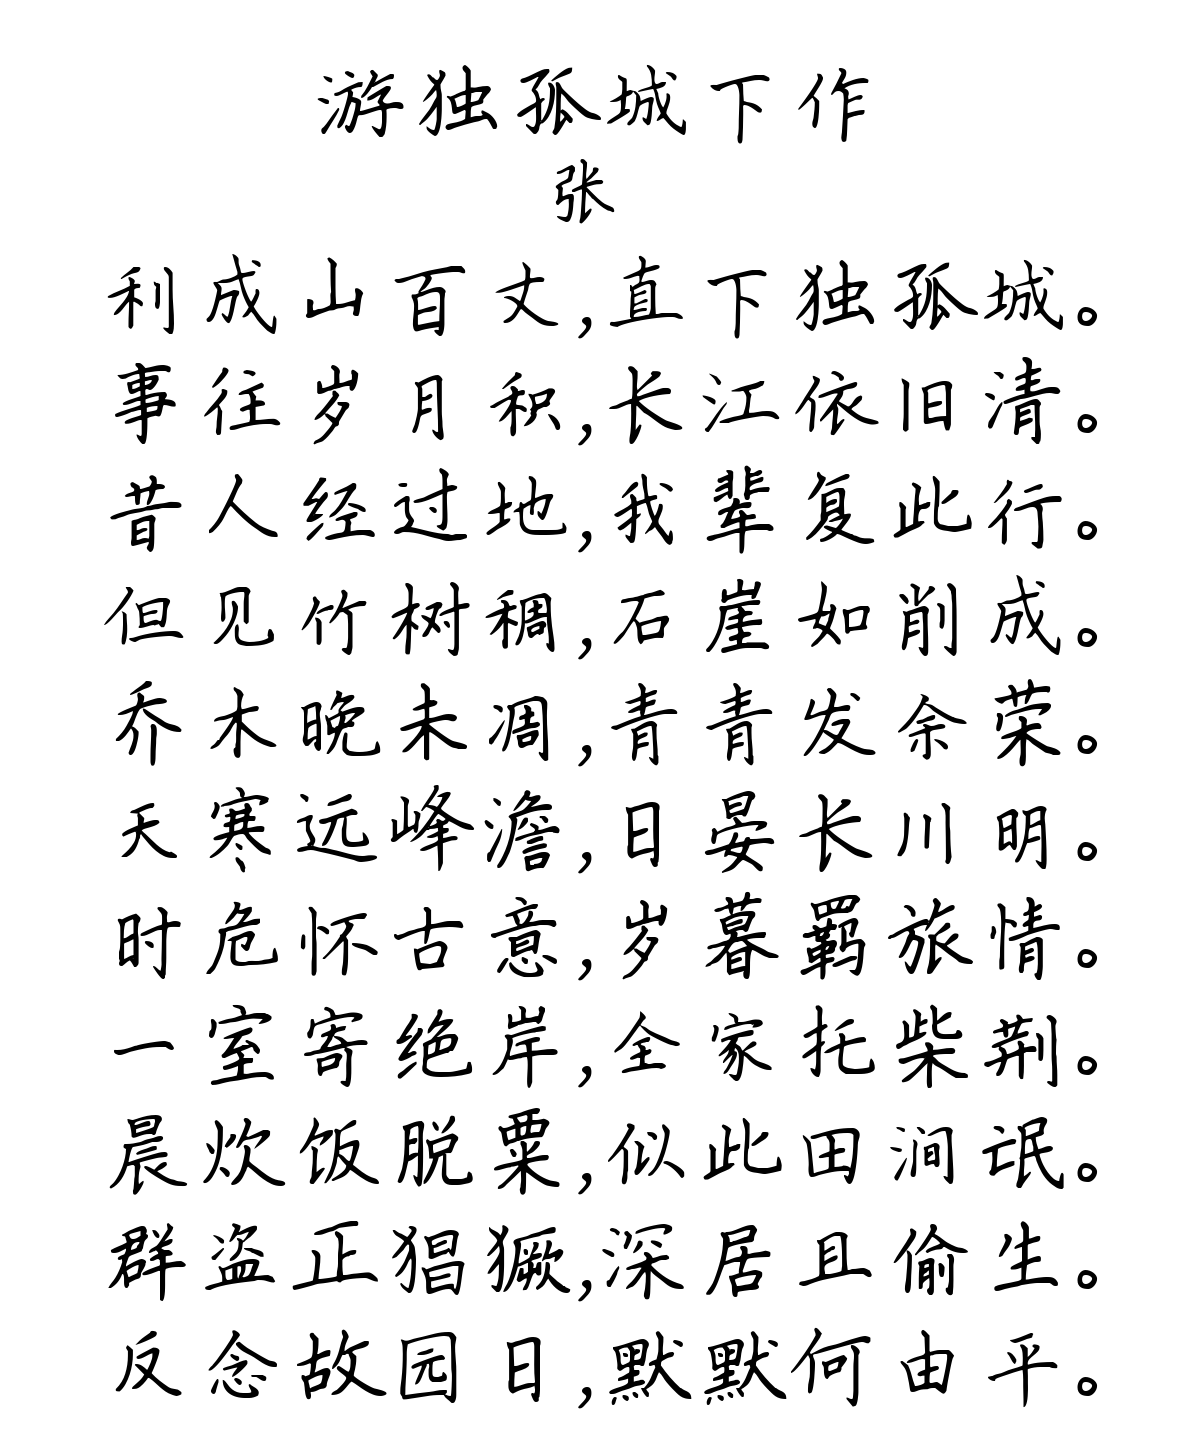 游独孤城下作
张
利成山百丈,直下独孤城。
事往岁月积,长江依旧清。
昔人经过地,我辈复此行。
但见竹树稠,石崖如削成。
乔木晚未凋,青青发余荣。
天寒远峰澹,日晏长川明。
时危怀古意,岁暮羁旅情。
一室寄绝岸,全家托柴荆。
晨炊饭脱粟,似此田涧氓。
群盗正猖獗,深居且偷生。
反念故园日,默默何由平。